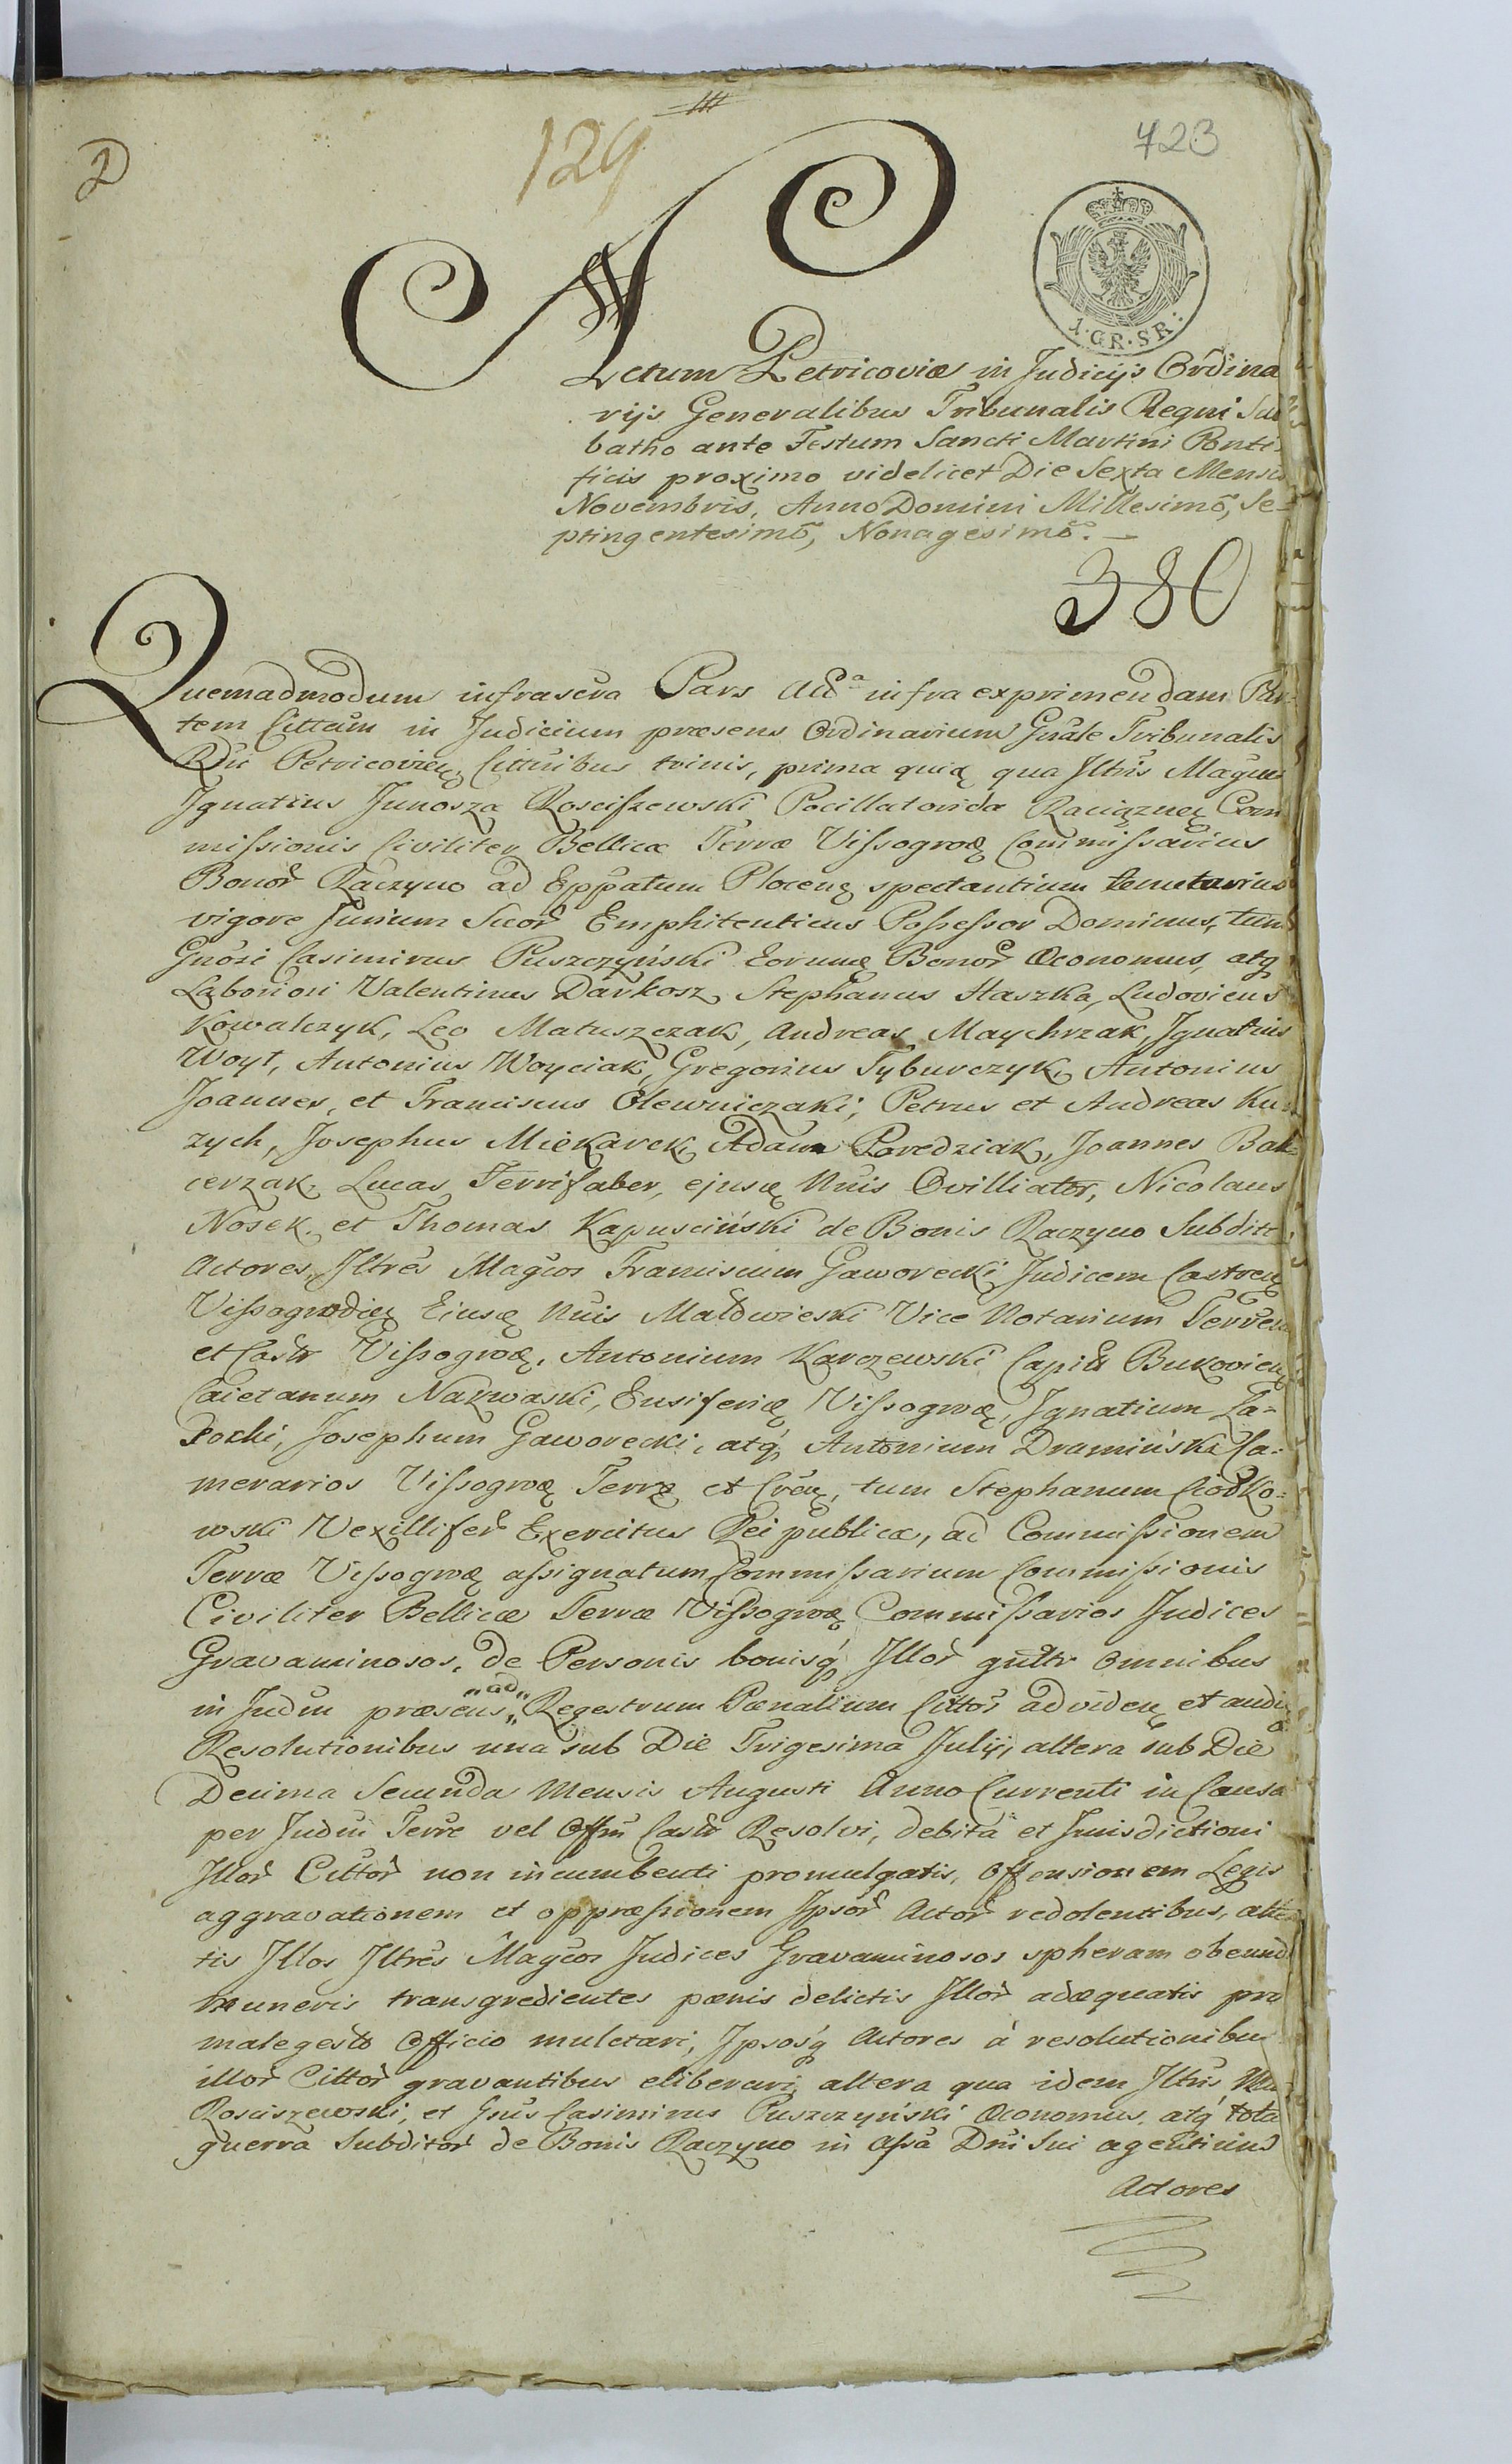 129
423
D
1·GR·SR:
Actum Petricoviæ in Judicijs Ordina
rijs Generalibus Tribunalis Regni Sab
batho ante Festum Sancti Martini Ponti-
ficis proximo videlicet Die Sexta Mensis
Novembris, Anno Domini Millesimō, Se-
ptingentesimō, Nonagesimō.
380
Quemadmodum infrascra Pars Actᵃ infra exprimendam Par-
tem Cittam in Judicium præsens Ordinarium Gnale Tribunalis
Rni Petricovien Cittnibus trinis, prima quię qua Jltris Magcus
Jgnatius Junosza Rosciszewski Pocillatorida Raciąznę Com
missionis Civiliter Bellicæ Terræ Vissogroę Commissarius
Bonor Raczyno ad Eppatum Plocenę spectantium tenutarius
vigore Jurium Suor Emphiteuticus Possessor Dominus, tum
Gnosi Casimirus Puszczyński Eorumę Bonor Oeconomus, atq
Laboriori Valentinus Darkosz, Stephanus Staszka, Ludovicus
Kowalczyk, Leo Matuszczak, Andreas Maychrzak, Jgnatius
Woyt, Antonius Woyciak, Gregorius Tyburczyk, Antonius
Joannes, et Franciscus Olewniczaki; Petrus et Andreas
zych, Josephus Miekarek, Adam Poredziak, Joannes Bal-
cerzak, Lucas Ferrifaber, ejusę Nnis Ovilliator, Nicolaus
Nosek, et Thomas Kapusciński de Bonis Raczyno Subditi
Actores, Jltres Magcos Franciscum Gaworecki Judicem Castrenę
Vissogrodię Ejusę Nnis Matdwieski Vice Notarium Terres
et Castr Vissogroę, Antonium Karczewski Capit Bukovienę
Caietanum Nakwaski, Ensiferię Vissogroę, Jgnatium La-
Josephum Gaworecki, atq Antonium Dramiński Ca-
merarios Vissogroę Terrę et Crenę, tum Stephanum Ciołko-
wski Vexillifer Exercitus Reipublicæ, ad Commissionem
Terræ Vissogroę assignatum Commissarium Commissionis
Civiliter Bellicæ Terræ Vissogroę Commissarios Judices
Gravaminosos, de Personis bonisq Jllor gnltr omnibus
in Judm præsens „ad„ Regestrum Pœnalium Cittor ad viden et audię
Resolutionibus una sub Die Trigesima Julij, altera sub Die
Decima Secunda Mensis Augusti Anno Currenti in Causa
per Judm Terre vel Offm Castr Resolvi, debita et Jurisdictioni
Jllor Cittor non incumbenti promulgatis, offensionem Legis
aggravationem et oppræssionem Jpsor Actor redolentibus, atten
tis Jllos Jltres Magcos Judices Gravaminosos spheram obeund
muneris transgredientes pœnis delictis Jllor adæquatis pro
malegesto Officio mulctari, Jpsosq Actores à resolutionibus
illor Cittor gravantibus eliberari, altera qua idem Jltris
Rosciszewski, et Gnus Casimirus Puszczyński Oeconomus, atq tota
guerra Subditor de Bonis Raczyno in Assa Dni Sui agentium
Actores